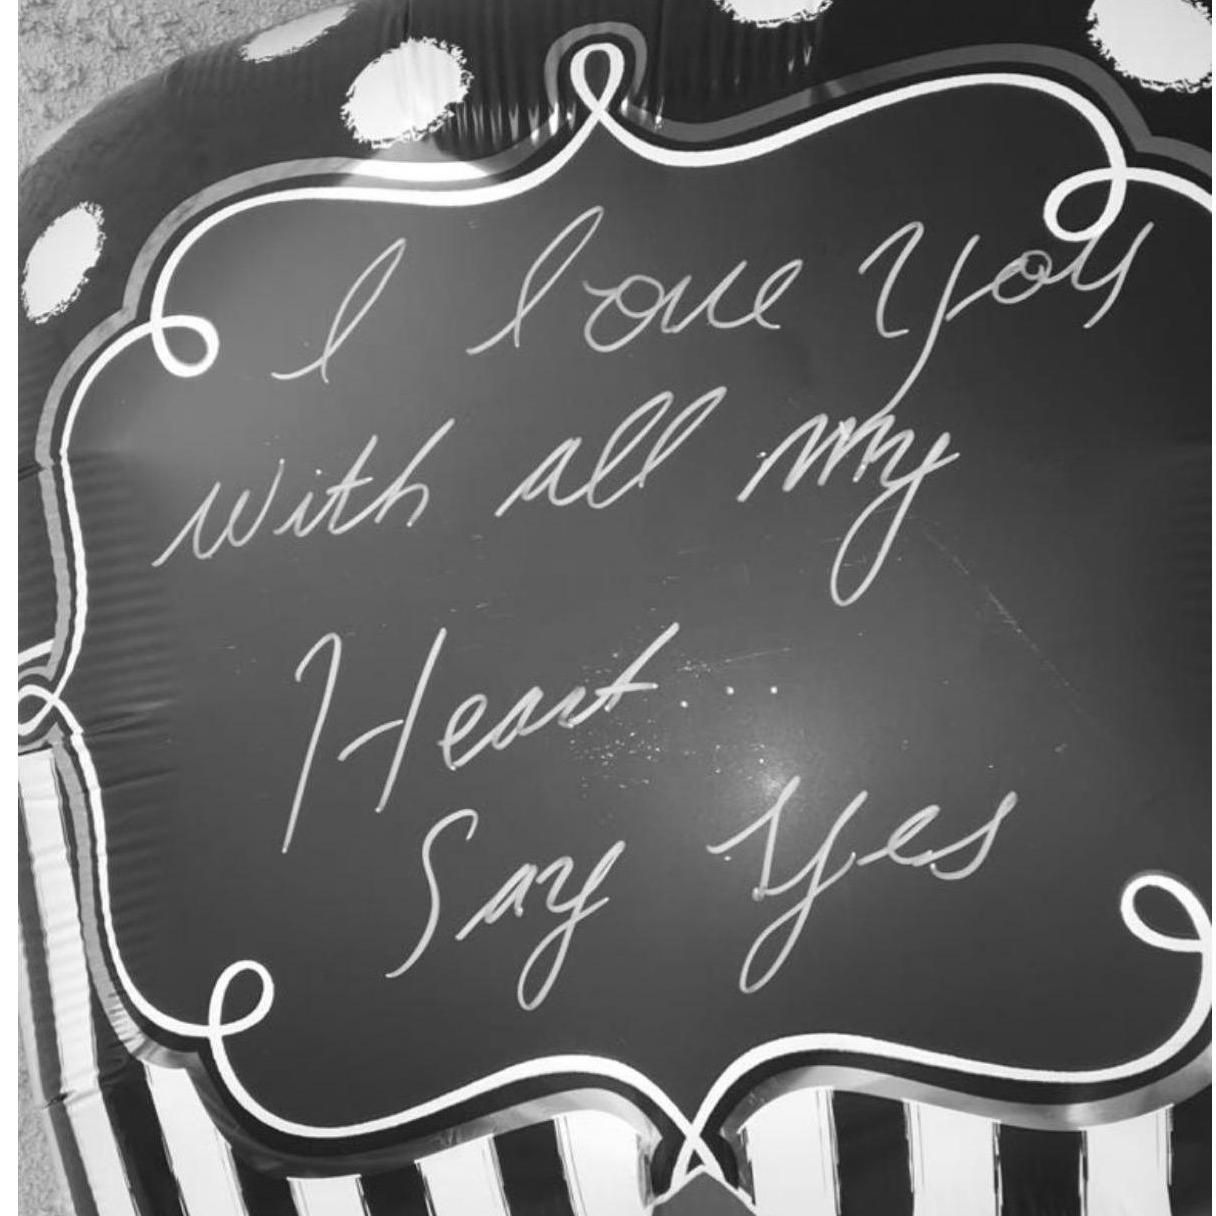 I love you
with all my
Heart
Say Yes